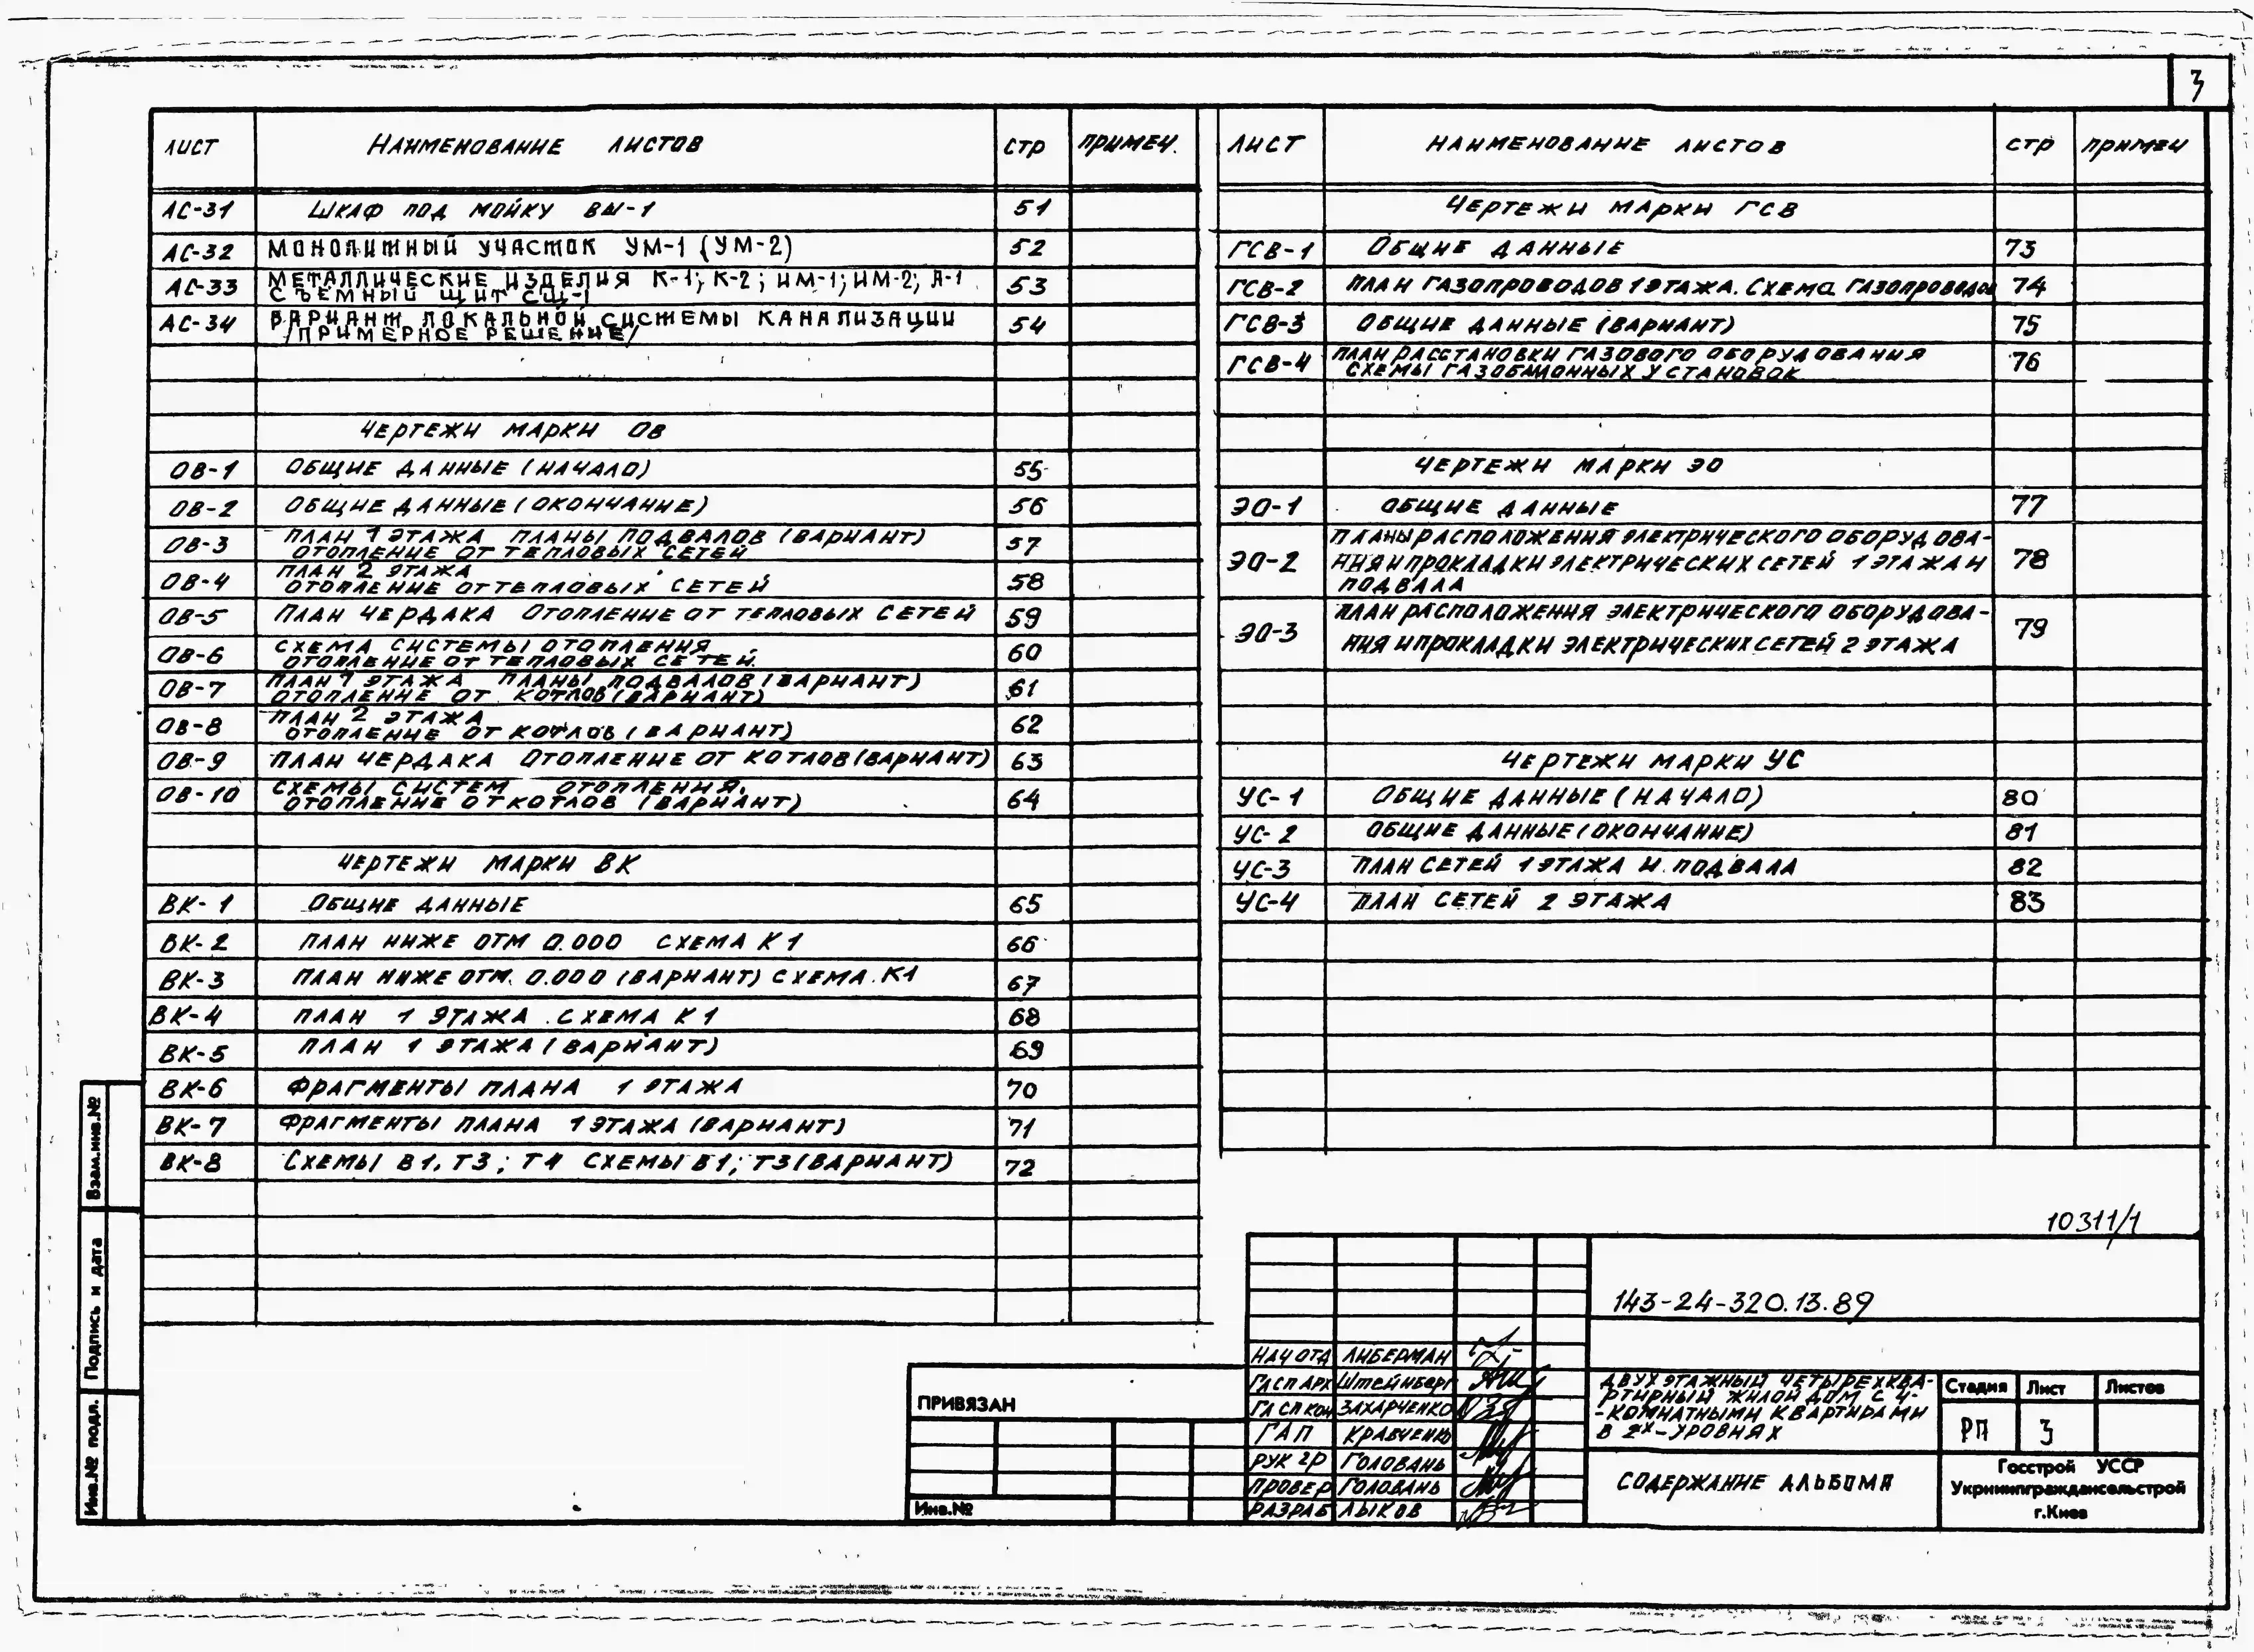 3
ЛИСТ НАИМЕНОВАНИЕ ЛИСТОВ СТР ПРИМЕЧ.
АС-31 ШКАФ ПОД МОЙКУ ВШ-1 51
АС-32 МОНОЛИТНЫЙ УЧАСТОК УМ-1 (УМ-2) 52
АС-33 МЕТАЛЛИЧЕСКИЕ ИЗДЕЛИЯ К-1; К-2; ИМ-1; ИМ-2; А-1 53
СЪЕМНЫЙ ЩИТ СЩ-1
АС-34 ВАРИАНТ ЛОКАЛЬНОЙ СИСТЕМЫ КАНАЛИЗАЦИИ 54
/ПРИМЕРНОЕ РЕШЕНИЕ/
ЧЕРТЕЖИ МАРКИ ОВ
ОВ-1 ОБЩИЕ ДАННЫЕ (НАЧАЛО) 55
ОВ-2 ОБЩИЕ ДАННЫЕ (ОКОНЧАНИЕ) 56
ОВ-3 ПЛАН 1 ЭТАЖА ПЛАНЫ ПОДВАЛОВ (ВАРИАНТ) 57
ОТОПЛЕНИЕ ОТ ТЕПЛОВЫХ СЕТЕЙ
ОВ-4 ПЛАН 2 ЭТАЖА 58
ОТОПЛЕНИЕ ОТ ТЕПЛОВЫХ СЕТЕЙ
ОВ-5 ПЛАН ЧЕРДАКА ОТОПЛЕНИЕ ОТ ТЕПЛОВЫХ СЕТЕЙ 59
ОВ-6 СХЕМА СИСТЕМЫ ОТОПЛЕНИЯ 60
ОТОПЛЕНИЕ ОТ ТЕПЛОВЫХ СЕТЕЙ.
ОВ-7 ПЛАН 1 ЭТАЖА ПЛАНЫ ПОДВАЛОВ (ВАРИАНТ) 61
ОТОПЛЕНИЕ ОТ КОТЛОВ (ВАРИАНТ)
ОВ-8 ПЛАН 2 ЭТАЖА 62
ОТОПЛЕНИЕ ОТ КОТЛОВ (ВАРИАНТ)
ОВ-9 ПЛАН ЧЕРДАКА ОТОПЛЕНИЕ ОТ КОТЛОВ (ВАРИАНТ) 63
ОВ-10 СХЕМЫ СИСТЕМ ОТОПЛЕНИЯ. 64
ОТОПЛЕНИЕ ОТ КОТЛОВ (ВАРИАНТ)
ЧЕРТЕЖИ МАРКИ ВК
ВК-1 ОБЩИЕ ДАННЫЕ 65
ВК-2 ПЛАН НИЖЕ ОТМ 0.000 СХЕМА К1 66
ВК-3 ПЛАН НИЖЕ ОТМ. 0.000 (ВАРИАНТ) СХЕМА К1 67
ВК-4 ПЛАН 1 ЭТАЖА. СХЕМА К1 68
ВК-5 ПЛАН 1 ЭТАЖА (ВАРИАНТ) 69
ВК-6 ФРАГМЕНТЫ ПЛАНА 1 ЭТАЖА 70
ВК-7 ФРАГМЕНТЫ ПЛАНА 1 ЭТАЖА (ВАРИАНТ) 71
ВК-8 СХЕМЫ В1, Т3; Т4 СХЕМЫ В1; Т3 (ВАРИАНТ) 72
ЛИСТ НАИМЕНОВАНИЕ ЛИСТОВ СТР ПРИМЕЧ
ЧЕРТЕЖИ МАРКИ ГСВ
ГСВ-1 ОБЩИЕ ДАННЫЕ 73
ГСВ-2 ПЛАН ГАЗОПРОВОДОВ 1 ЭТАЖА. СХЕМА ГАЗОПРОВОДОВ 74
ГСВ-3 ОБЩИЕ ДАННЫЕ (ВАРИАНТ) 75
ГСВ-4 ПЛАН РАССТАНОВКИ ГАЗОВОГО ОБОРУДОВАНИЯ 76
СХЕМЫ ГАЗОБАЛЛОННЫХ УСТАНОВОК
ЧЕРТЕЖИ МАРКИ ЭО
ЭО-1 ОБЩИЕ ДАННЫЕ 77
ПЛАНЫ РАСПОЛОЖЕНИЯ ЭЛЕКТРИЧЕСКОГО ОБОРУДОВА-
ЭО-2 НИЯ И ПРОКЛАДКИ ЭЛЕКТРИЧЕСКИХ СЕТЕЙ 1 ЭТАЖА И 78
ПОДВАЛА
ПЛАН РАСПОЛОЖЕНИЯ ЭЛЕКТРИЧЕСКОГО ОБОРУДОВА-
ЭО-3 НИЯ И ПРОКЛАДКИ ЭЛЕКТРИЧЕСКИХ СЕТЕЙ 2 ЭТАЖА 79
ЧЕРТЕЖИ МАРКИ УС
УС-1 ОБЩИЕ ДАННЫЕ (НАЧАЛО) 80
УС-2 ОБЩИЕ ДАННЫЕ (ОКОНЧАНИЕ) 81
УС-3 ПЛАН СЕТЕЙ 1 ЭТАЖА И ПОДВАЛА 82
УС-4 ПЛАН СЕТЕЙ 2 ЭТАЖА 83
Взам.инв.№
Подпись и дата
Инв.№ подл.
10311/1
143-24-320.13.89
НАЧ ОТД ЛИБЕРМАН
ГЛ СП АРХ ШТЕЙНБЕРГ
ГЛ СП КОН ЗАХАРЧЕНКО
ГАП КРАВЧЕНКО
РУК ГР ГОЛОВАНЬ
ПРОВЕР ГОЛОВАНЬ
РАЗРАБ ЛЫКОВ
ПРИВЯЗАН
Инв.№
ДВУХЭТАЖНЫЙ ЧЕТЫРЕХКВА-
РТИРНЫЙ ЖИЛОЙ ДОМ С 4-
-КОМНАТНЫМИ КВАРТИРАМИ
В 2Х-УРОВНЯХ
Стадия Лист Листов
РП 3
СОДЕРЖАНИЕ АЛЬБОМА
Госстрой УССР
Укрниипграждансельстрой
г.Киев